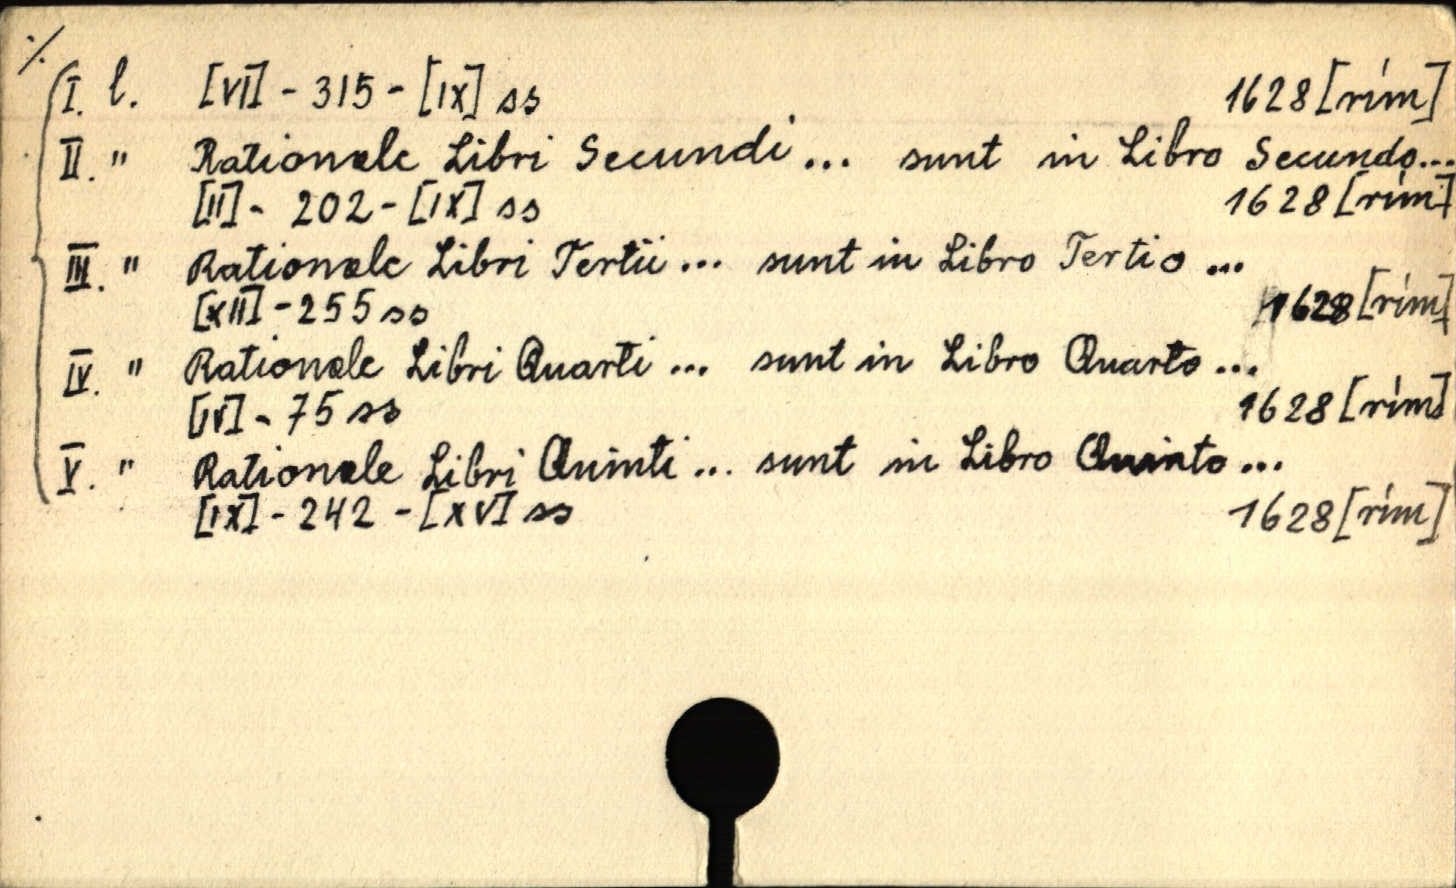 ./.
I. l. [VI] - 315 - [IX] ss 1628 [rím]
II. " Rationale Libri Secundi ... sunt in Libro Secundo...
[II] - 202 - [IX] ss 1628 [rím]
III. " Rationale Libri Tertii ... sunt in Libro Tertio ...
[XII] - 255 ss 1628 [rím]
IV. " Rationale Libri Quarti ... sunt in Libro Quarto ...
[IV] - 75 ss 1628 [rím]
V. " Rationale Libri Quinti ... sunt in Libro Quinto ...
[IX] - 242 - [XV] ss 1628 [rím]